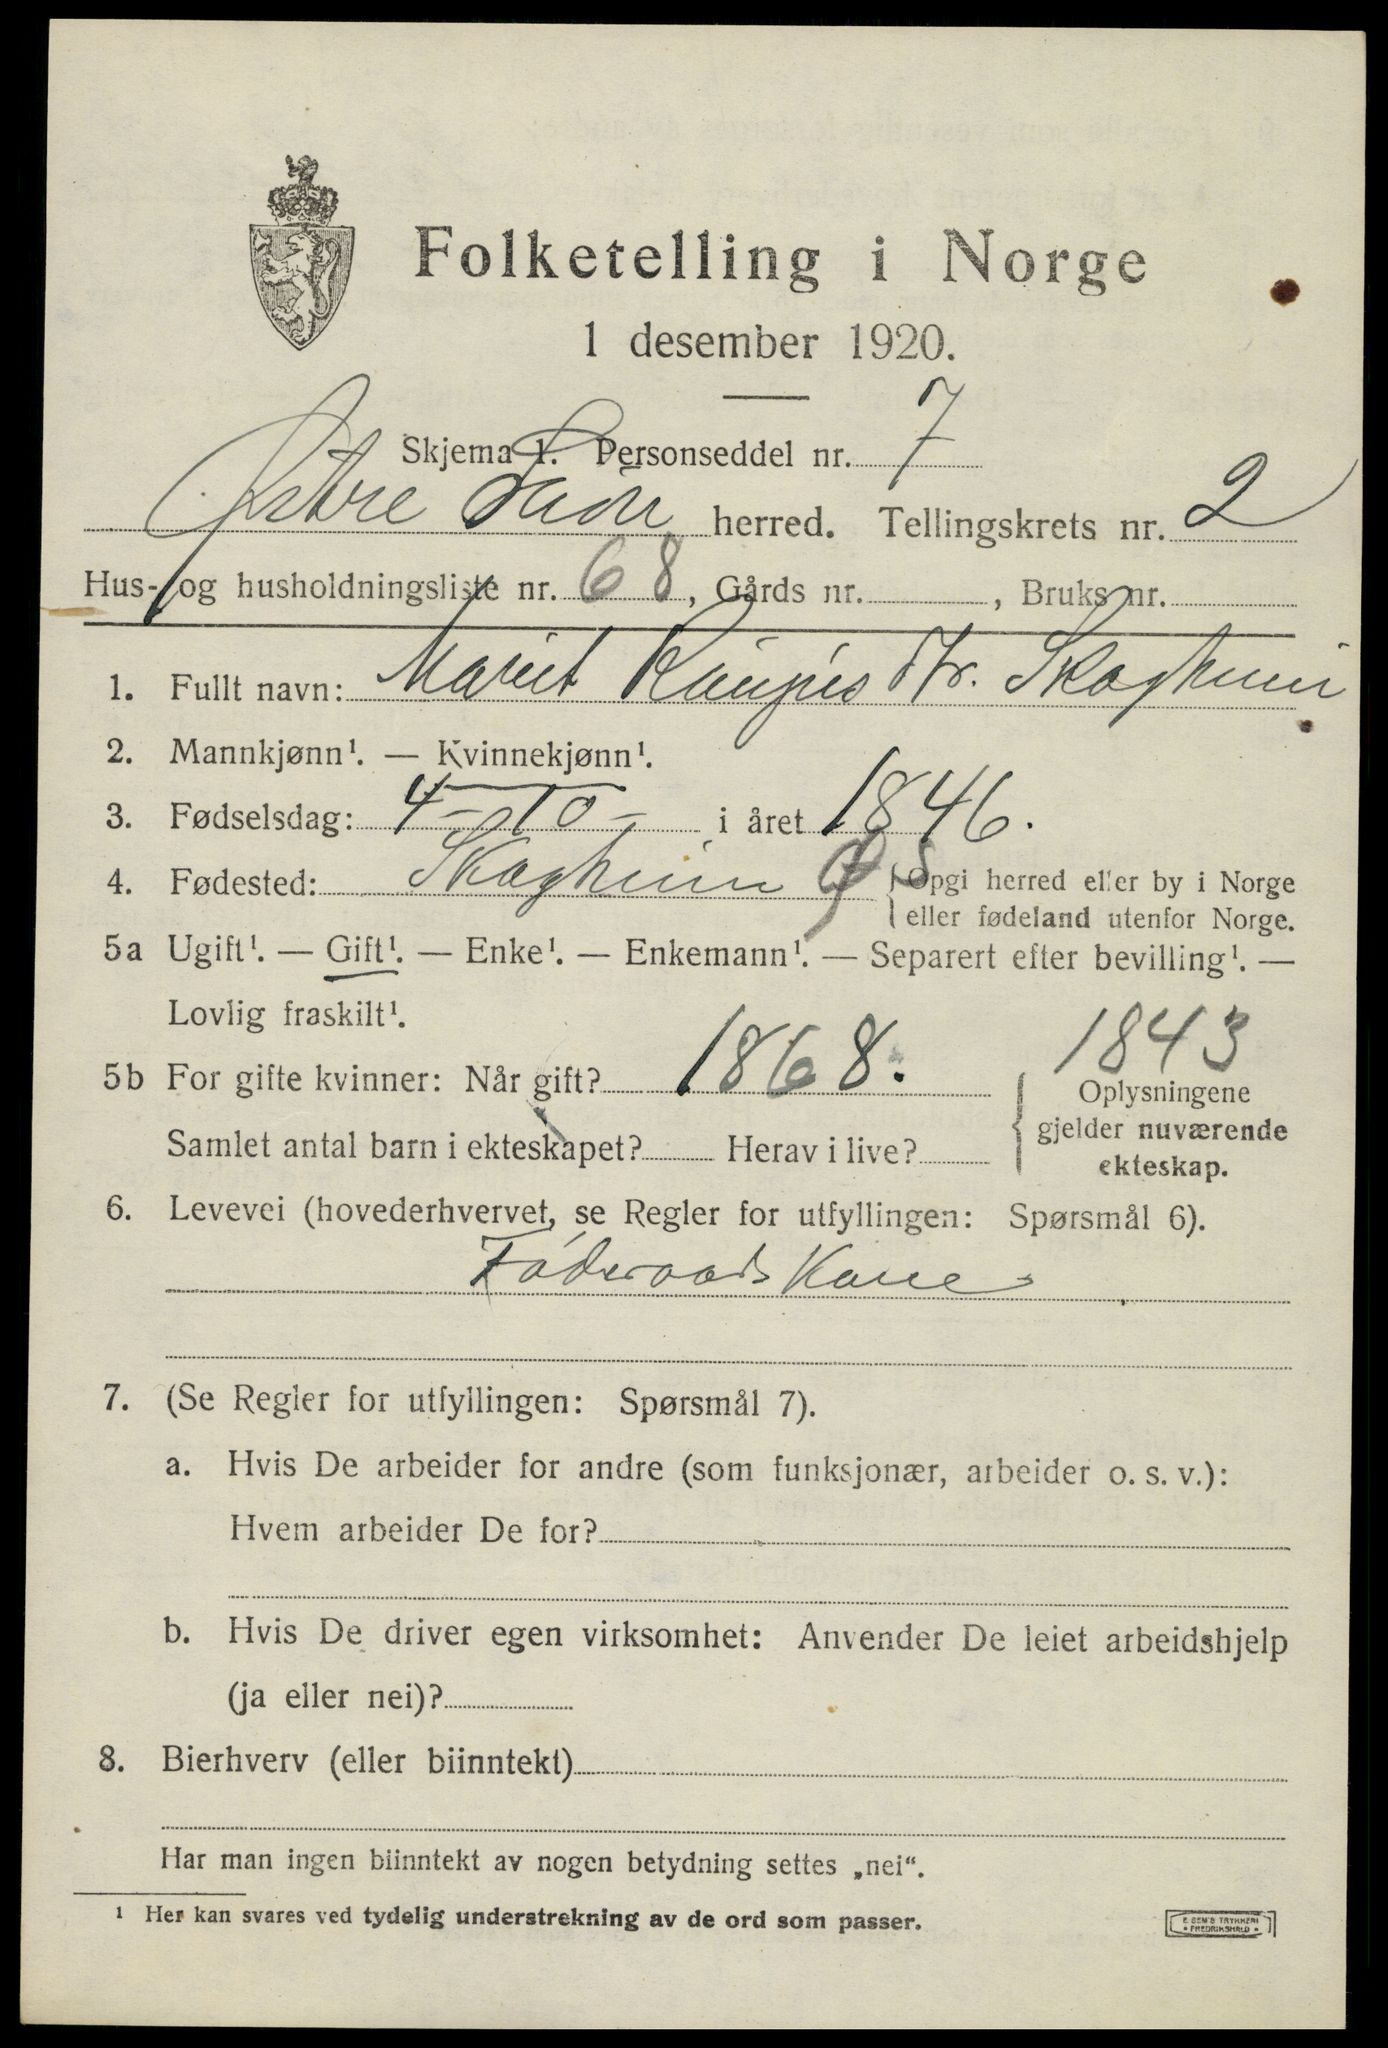 Folketelling i Norge
1 desember 1920.
Skjema 1. Personseddel nr. 7
Østre Slidr herred. Tellingskrets nr. 2
Hus- og husholdningsliste nr. 68, Gårds nr. , Bruks nr.
1. Fullt navn: Marit dtr. Skagheim
2. Mannkjønn¹. — Kvinnekjønn¹.
3. Fødselsdag: 4-10- i året 1846.
4. Fødested: Skagheim ØS {Opgi herred eller by i Norge
eller fødeland utenfor Norge.
5a Ugift¹. — Gift¹. — Enke¹. — Enkemann¹. — Separert efter bevilling¹. —
Lovlig fraskilt¹.
1843
5b For gifte kvinner: Når gift? 1868. {Oplysningene
gjelder nuværende
ekteskap.
Samlet antal barn i ekteskapet? Herav i live?
6. Levevei (hovederhvervet, se Regler for utfyllingen: Spørsmål 6).
Föderaads Kone
7. (Se Regler for utfyllingen: Spørsmål 7).
a. Hvis De arbeider for andre (som funksjonær, arbeider o. s. v.):
Hvem arbeider De for?
b. Hvis De driver egen virksomhet: Anvender De leiet arbeidshjelp
(ja eller nei)?
8. Bierhverv (eller biinntekt)
Har man ingen biinntekt av nogen betydning settes „nei“.
¹ Her kan svares ved tydelig understrekning av de ord som passer.
E. SEM'S TRYKKERI
• FREDRIKSHALD •